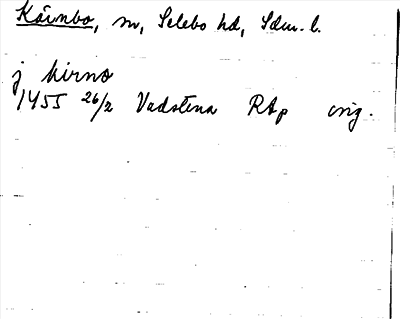 Kärnbo, sn, Selebo hd, Sdm. l.
j kirno
1455 26/2 Vadstena RAp orig.